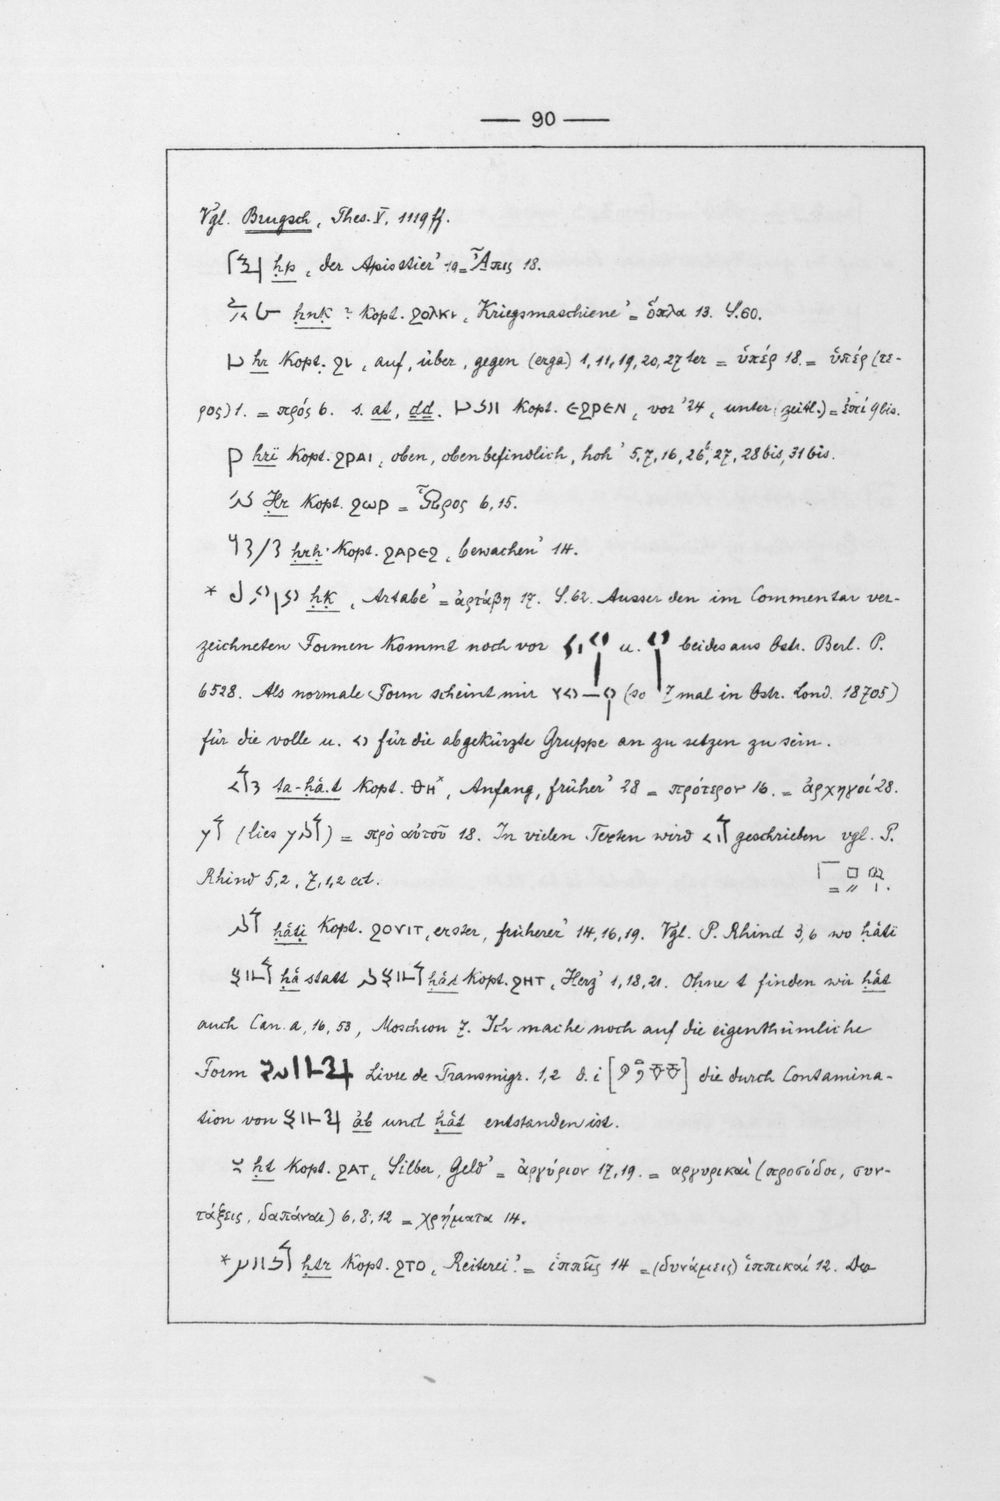 — 90 —
Vgl. Brugsch, Thes. V, 1119 ff.
ḥp ‚der Apisstier' 19 = Ἆπις 18.
ḥnḳ ? Kopt. ϩολκι ‚Kriegsmaschiene' = ὅπλα 13. S. 60.
ḥr Kopt. ϩι ‚auf, über, gegen (erga) 1, 11, 19, 20, 27 ter = ὑπέρ 18 = ὑπέρ (τε-
ρος) 1. = πρός 6. s. at, dd. Kopt. ⲉϩⲣⲉⲛ ‚vor' 24 ‚unter (zeitl.) = ἐπί 9 bis.
ḥrï Kopt. ϩⲣⲁⲓ ‚oben, obenbefindlich, hoh' 5, 7, 16, 26, 27, 28 bis, 31 bis.
Ḥr Kopt. ϩⲱⲣ = Ὧρος 6, 15.
ḥrḥ Kopt. ϩⲁⲣⲉϩ ‚bewachen' 14.
* ḥḳ ‚Artabe' = ἀρτάβη 17. S. 62. Ausser den im Commentar ver-
zeichneten Formen kommt noch vor u. beides aus Ostr. Berl. P.
6528. Als normale Form scheint mir (so 7 mal in Ostr. Lond. 18705)
für die volle u. für die abgekürzte Gruppe an zu setzen zu sein.
ta-ḥå.t Kopt. ⲑⲏ ‚Anfang, früher' 28 = πρότερον 16. = ἀρχηγοί 28.
(lies ) = πρὸ αὐτοῦ 18. In vielen Texten wird geschrieben vgl. P.
Rhind 5,2, 7,1,2 etc.
ḥåti Kopt. ϩⲟⲩⲓⲧ ‚erster, früherer' 14, 16, 19. Vgl. P. Rhind 3,6 wo ḥåti
ḥå statt ḥåt Kopt. ϩⲏⲧ ‚Herz' 1, 18, 21. Ohne t finden wir ḥåt
auch Can. a, 16, 53, Moschion 7. Ich mache noch auf die eigenthümliche
Form Livre de Transmigr. 1,2 d. i [ ] die durch Contamina-
tion von åb und ḥåt entstanden ist.
ḥt Kopt. ϩⲁⲧ ‚Silber, Geld' = ἀργύριον 17, 19. = αργυρικαὶ (προσόδοι, συν-
τάξεις, δαπάναι) 6, 8, 12 = χρήματα 14.
* ḥtr Kopt. ϩⲧⲟ ‚Reiterei' = ἱππεῖς 14 = (δυνάμεις) ἱππικαί 12.